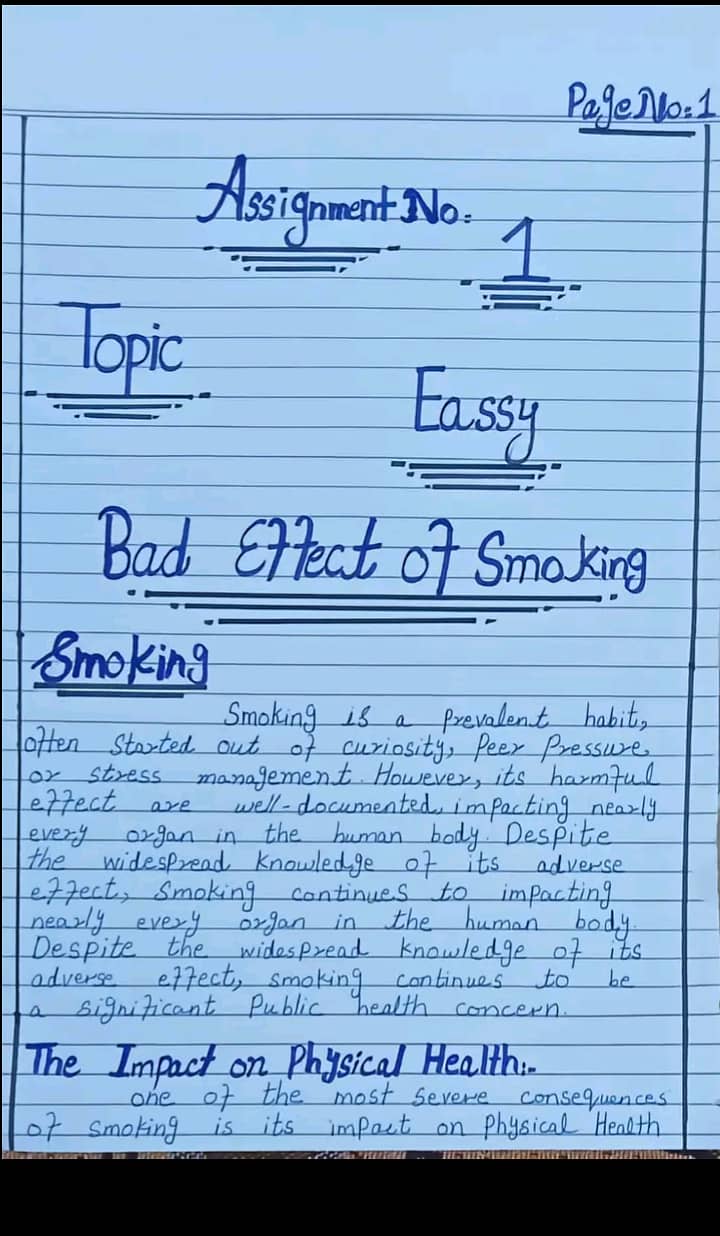 Page No:1
Assignment No:
1
Topic
Eassy
Bad Effect of Smoking
Smoking
Smoking is a prevalent habit,
often Started out of curiosity, Peer Pressure,
or stress management. However, its harmful
effect are well-documented, impacting nearly
every organ in the human body. Despite
the widespread knowledge of its adverse
effect, Smoking continues to impacting
nearly every organ in the human body.
Despite the widespread knowledge of its
adverse effect, smoking continues to be
a significant Public health concern.
The Impact on Physical Health:-
one of the most severe consequences
of smoking is its impact on Physical Health